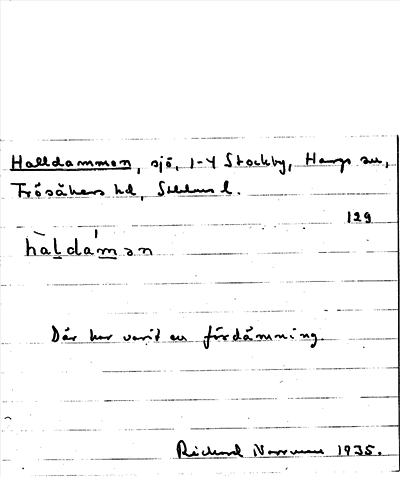 Halldammen, sjö, 1-4 Stockby, Hargs sn,
Frösåkers hd, Sthlms l.
129
hàldám̲ən
Där har varit en fördämning.
Richard 1935.